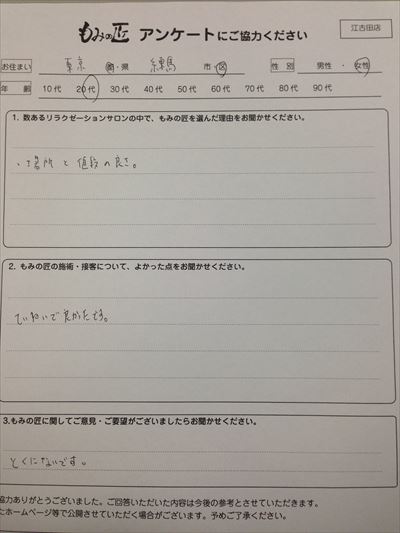 江古田店
もみの匠 アンケートにご協力ください
お住まい 東京 都・県 練馬 市・区 性別 男性・女性
年齢 10代 20代 30代 40代 50代 60代 70代 80代 90代
1. 数あるリラクゼーションサロンの中で、もみの匠を選んだ理由をお聞かせください。
・場所と値段の良さ。
2. もみの匠の施術・接客について、よかった点をお聞かせください。
ていねいで良かたです。
3.もみの匠に関してご意見・ご要望がございましたらお聞かせください。
とくにないです。
協力ありがとうございました。ご回答いただいた内容は今後の参考とさせていただきます。
たホームページ等で公開させていただく場合がございます。予めご了承ください。